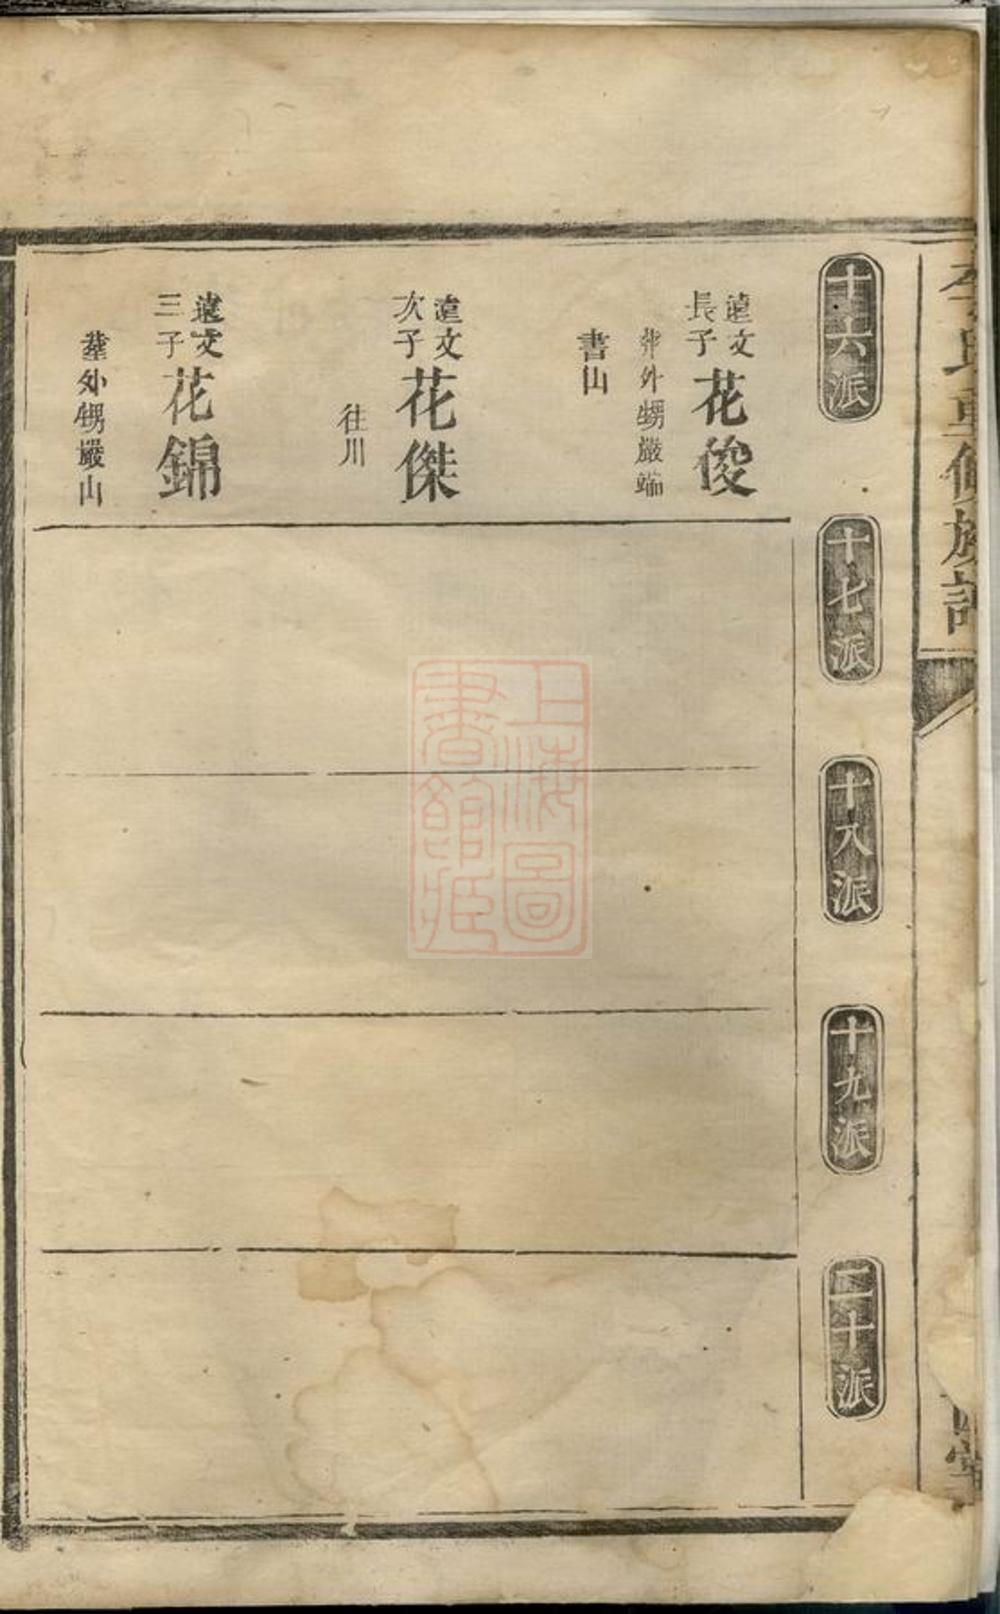 李氏重修族譜
堂
十六派
十七派
十八派
十九派
二十派
遠文
長子
花俊
葬外甥嚴端
書山
遠文
次子
花傑
往川
遠文
三子
花錦
葬外甥嚴山
上海圖
書館藏